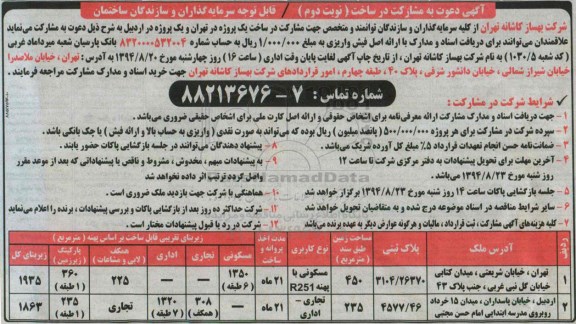 آگهی دعوت به مشارکت در ساخت ( نوبت دوم ) / قابل توجه سرمایه‌گذاران و سازندگان ساختمان
شرکت بهساز کاشانه تهران از کلیه سرمایه‌گذاران و سازندگان توانمند و متخصص جهت مشارکت در ساخت یک پروژه در تهران و یک پروژه در اردبیل به شرح ذیل دعوت به مشارکت می‌نماید
علاقمندان می‌توانند برای دریافت اسناد و مدارک با ارائه اصل فیش واریزی به مبلغ ۱/۰۰۰/۰۰۰ ریال به شماره حساب ۸۳۲۰۰۰۰۵۳۲۰۰۴ بانک پارسیان شعبه میرداماد غربی
(کد شعبه ۱۰۳۰/۵) به نام شرکت بهساز کاشانه تهران، از تاریخ چاپ آگهی لغایت پایان وقت اداری (ساعت ۱۶) روز چهارشنبه مورخ ۱۳۹۴/۸/۲۰ به آدرس: تهران، خیابان ملاصدرا
خیابان شیراز شمالی، خیابان دانشور شرقی، پلاک ۴۰، طبقه چهارم، امور قراردادهای شرکت بهساز کاشانه تهران جهت خرید اسناد و مدارک مشارکت مراجعه فرمایند.
شماره تماس: ۷ - ۸۸۲۱۳۶۷۶
شرایط شرکت در مشارکت:
۱ - جهت دریافت اسناد و مدارک مشارکت ارائه معرفی‌نامه برای اشخاص حقوقی و ارائه اصل کارت ملی برای اشخاص حقیقی ضروری می‌باشد.
۲ - سپرده شرکت در مشارکت برای هر پروژه ۵۰۰/۰۰۰/۰۰۰ (پانصد میلیون) ریال بوده که می‌تواند به صورت نقدی (واریزی به حساب بالا و ارائه فیش) یا چک بانکی باشد.
۳ - ضمانت‌نامه حسن انجام تعهدات قرارداد ۵٪ مبلغ کل آورده شریک می‌باشد.
۴ - آخرین مهلت برای تحویل پیشنهادات به دفتر مرکزی شرکت تا ساعت ۱۲
روز شنبه مورخ ۱۳۹۴/۸/۲۳ می‌باشد.
۵ - جلسه بازگشایی پاکات ساعت ۱۴ روز شنبه مورخ ۱۳۹۴/۸/۲۳ برگزار خواهد شد
۶ - سایر شرایط مناقصه در اسناد موضوعه درج شده و به متقاضیان تحویل خواهد شد
۷ - کلیه هزینه‌های آگهی مشارکت، ثبت قرارداد، مالیات و هرگونه عوارض دیگر به عهده برنده می‌باشد
۸ - پیشنهاد دهندگان می‌توانند در جلسه بازگشایی پاکات حضور یابند.
۹ - به پیشنهادات مبهم، مخدوش، مشروط و ناقص یا پیشنهاداتی که بعد از موعد مقرر
واصل گردد ترتیب اثر داده نخواهد شد
۱۰ - هماهنگی با شرکت جهت بازدید ملک ضروری است.
۱۱ - شرکت حداکثر ده روز بعد از بازگشایی پاکات و بررسی پیشنهادات، برنده را اعلام می‌نماید
۱۲ - شرکت در رد یا قبول پیشنهادات مختار است.
ردیف آدرس ملک پلاک ثبتی مساحت زمین طبق سند (مترمربع) نوع کاربری مدت اخذ پروانه و ساخت زیربنای تقریبی قابل ساخت بر اساس پهنه (مترمربع)
مسکونی تجاری اداری همکف (لابی و مشاعات) پارکینگ (زیرزمین) زیربنای کل
۱ تهران، خیابان شریعتی، میدان کتابی خیابان گل نبی غربی، جنب پلاک ۴۳ ۳۱۰۴/۲۶۳۷۰ ۴۵۰ مسکونی با پهنه R251 ۲۱ ماه ۱۳۵۰ (۶ طبقه) — — ۲۲۵ ۳۶۰ (۱ طبقه) ۱۹۳۵
۲ اردبیل، خیابان پاسداران، میدان ۱۵ خرداد روبروی مدرسه ابتدایی امام حسن مجتبی ۴۵۷۷/۴۶ ۲۳۵ تجاری - اداری ۲۱ ماه — ۳۰۸ (همکف) ۱۳۲۰ (۷ طبقه) تجاری ۲۳۵ (۱ طبقه) ۱۸۶۳